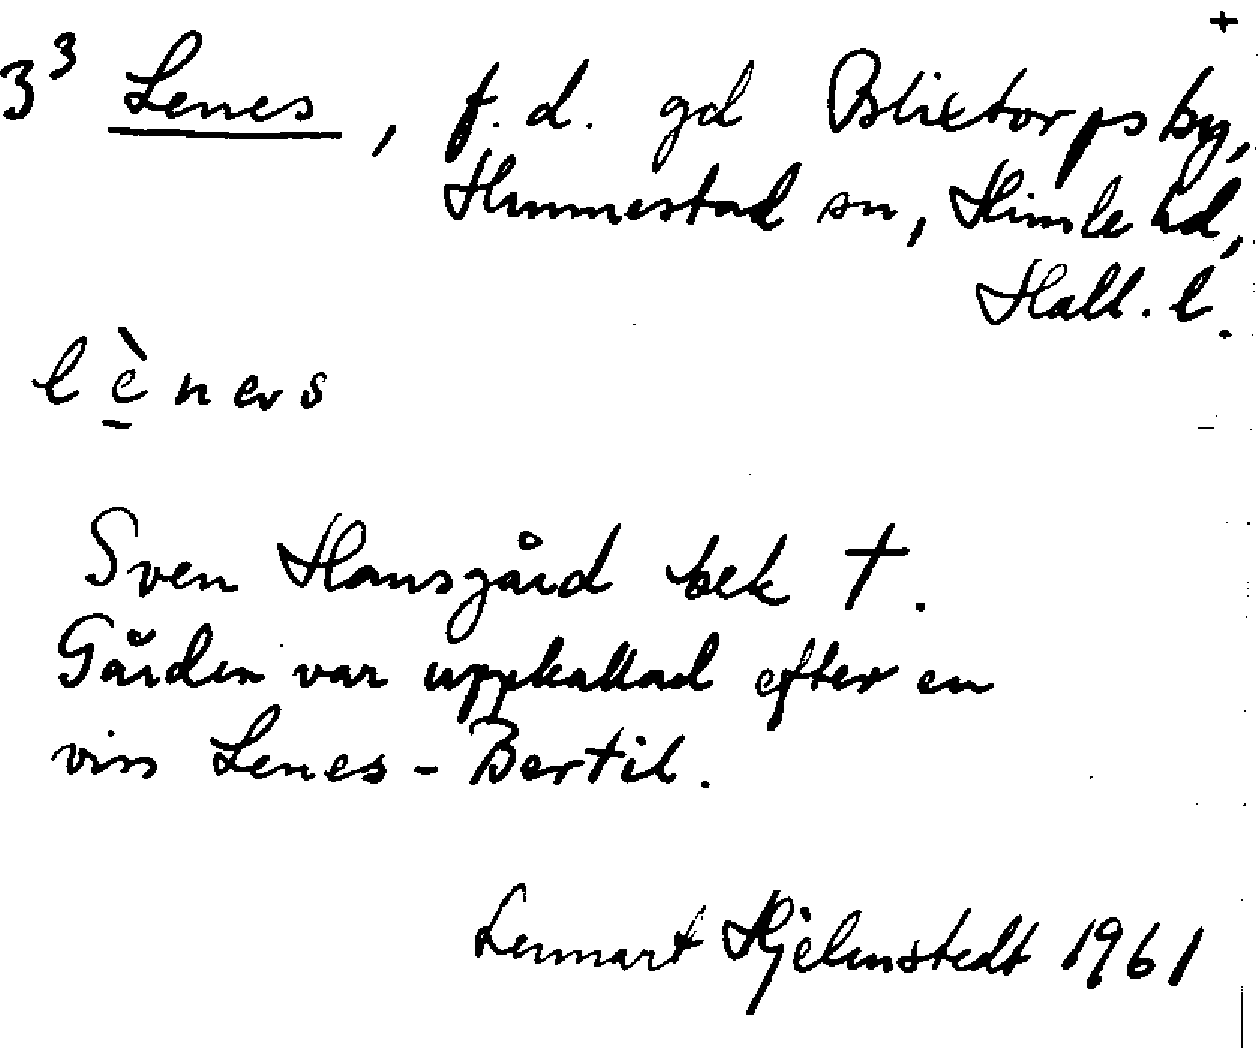 +
3³ Lenes, f.d. gd Blixtorps by,
Hunnestad sn, Himle hd,
Hall. l.
lèners
Sven Hansgård bek †.
Gården var uppkallad efter en
viss Lenes-Bertil.
Lennart Hjelmstedt 1961